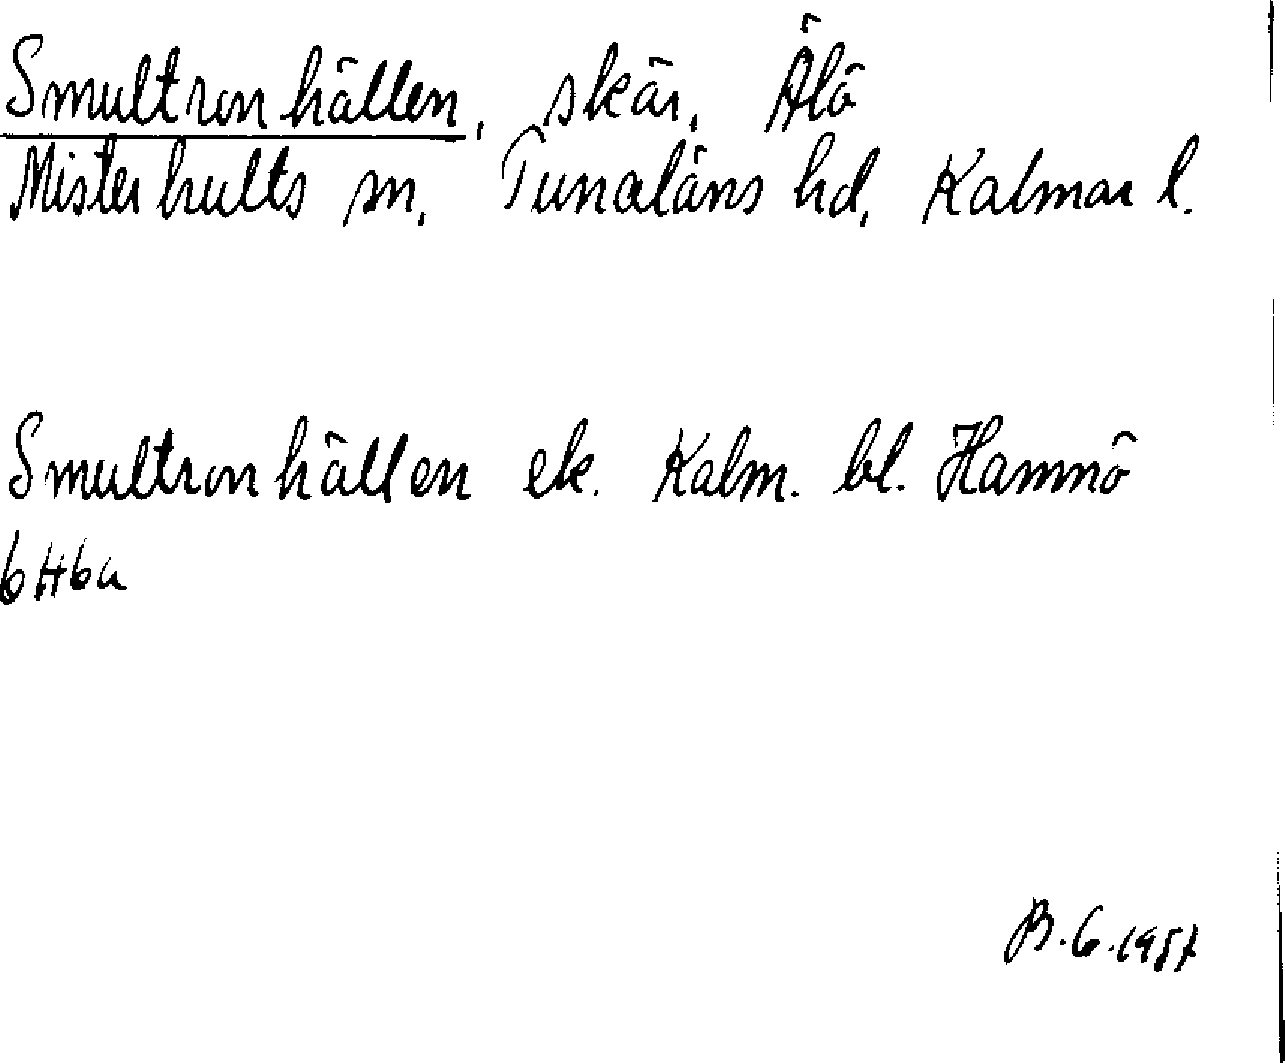 Smultronhällen, skär, Älö
Misterhults sn, Tunaläns hd, Kalmar l.
Smultronhällen ek. Kalm. bl. Hamnö
6H6a
B.G.1957